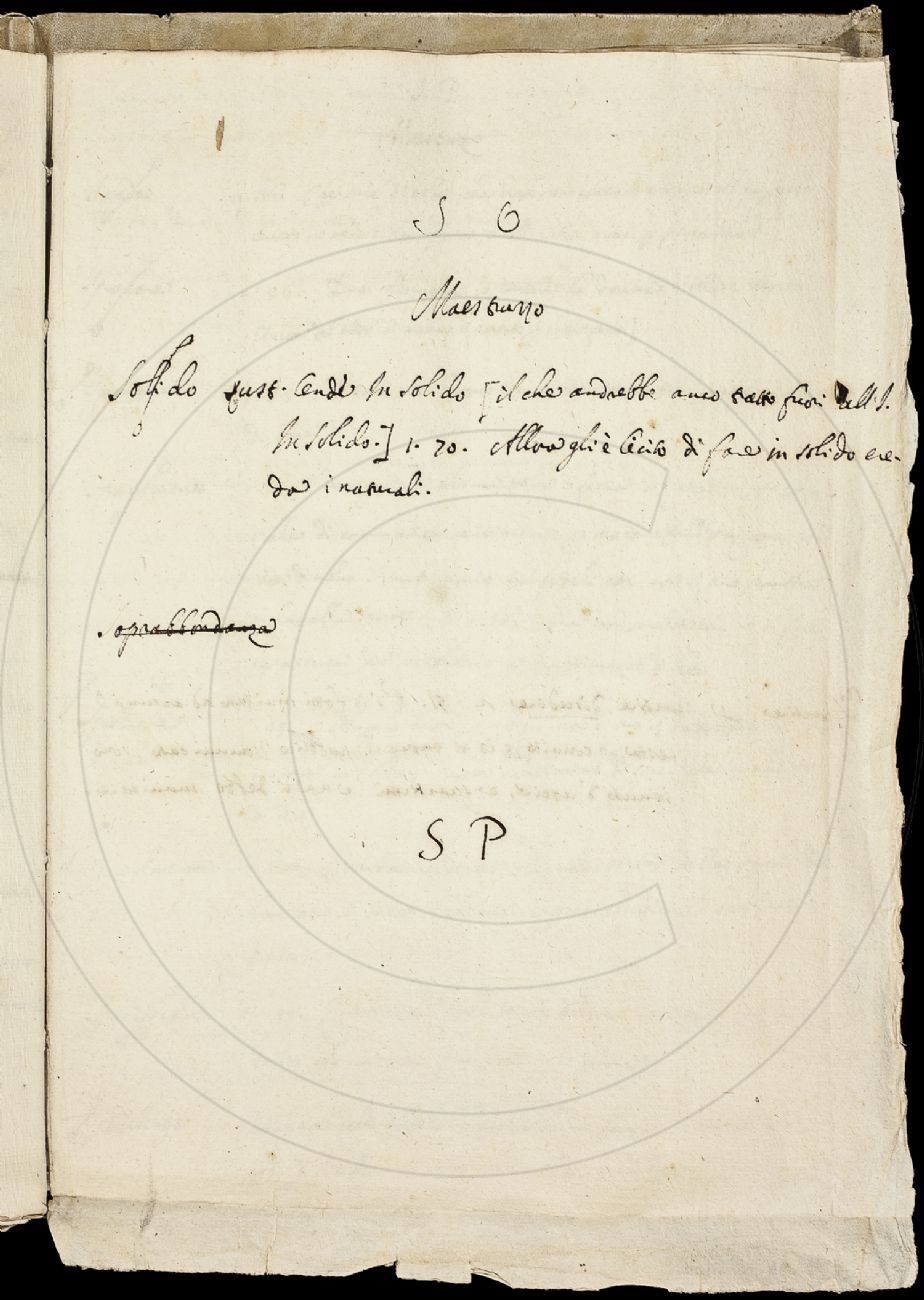 S O
Maestruzzo
Solido sust. Cendi In solido [il che andrebbe anco tratto fuori all' I.
In solido.] 1. 70. Allora gli è lecito di fare in solido ere-
da i naturali.
Soprabbondanza
S P